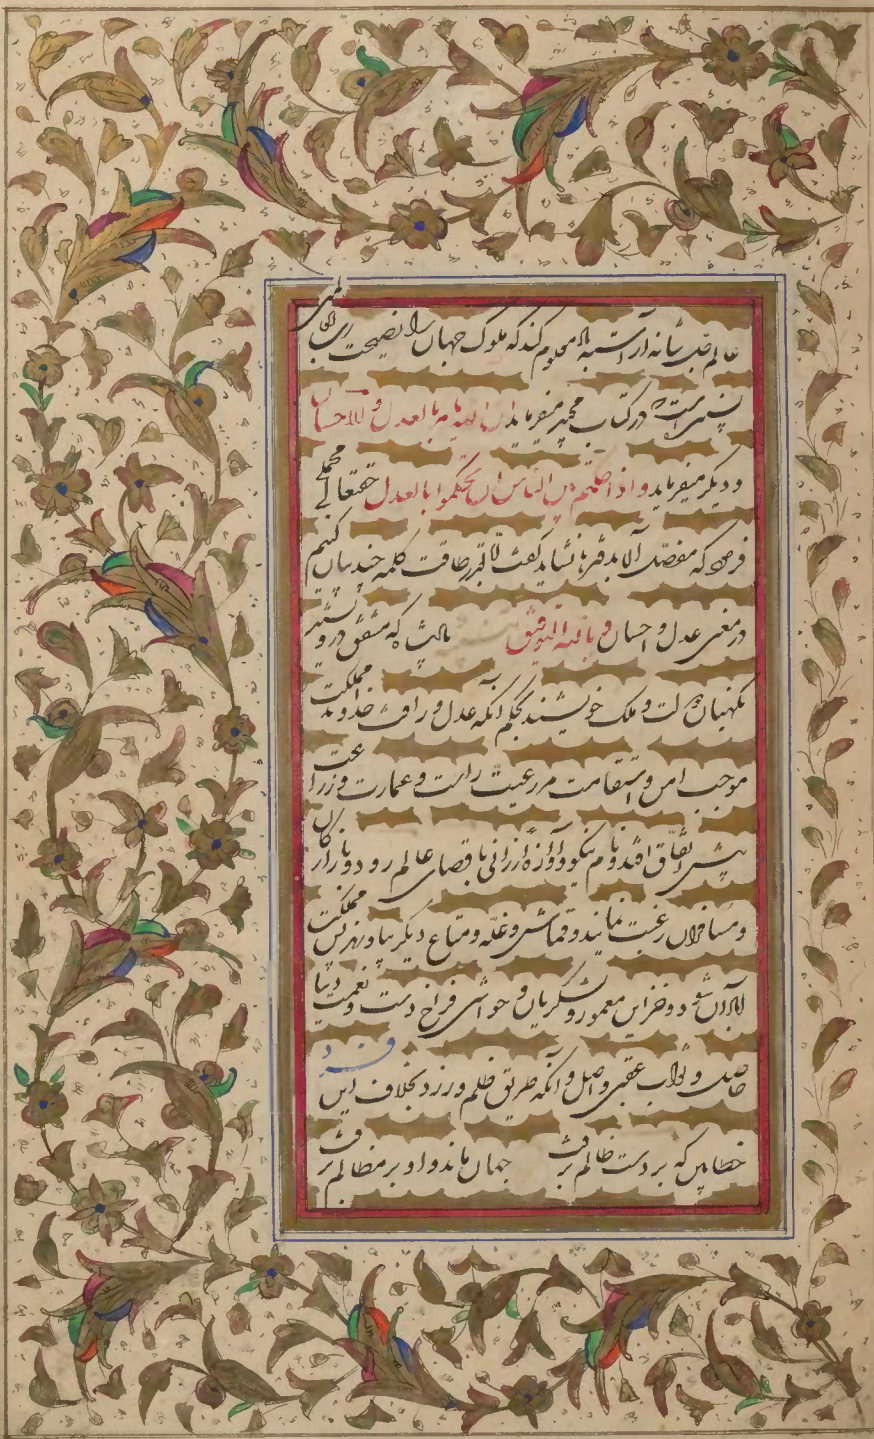 عالم جل شانه آراسته معلوم کند که ملوک جهان را نصیحت رب العالمین
بس است در کتاب مجید میفرماید ان الله یامر بالعدل والاحسان
و دیگر میفرماید و اذا حکمتم بین الناس ان تحکموا بالعدل حقتعالی مجملی
فرمود که مفصل آن بدفترها نشاید گفت الا بقدر طاقت کلمه چند بیان کنیم
در معنی عدل و احسان و بالله التوفیق که مشفق درویش
نگهبان دولت و ملک خویشند بحکم آنکه عدل و رافت خداوند مملکت
موجب امن و استقامت مر رعیت راست و عمارت و زراعت
بیش اتفاق افتد و نام نیکو و آوازه ارزانی باقصای عالم رود و بازارگان
و مسافران رغبت نمایند و قماش و غله و متاع دیگر بیاورند پس مملکت
آبادان شود و خزاین معمور و لشکریان و حواشی فراخ دست و نعمت دنیا
حاصل و ثواب عقبی واصل و آنکه طریق ظلم ورزد بخلاف این فرد
خطا بین که بر دست ظالم برفت جهان ماند و او بر مظالم برفت